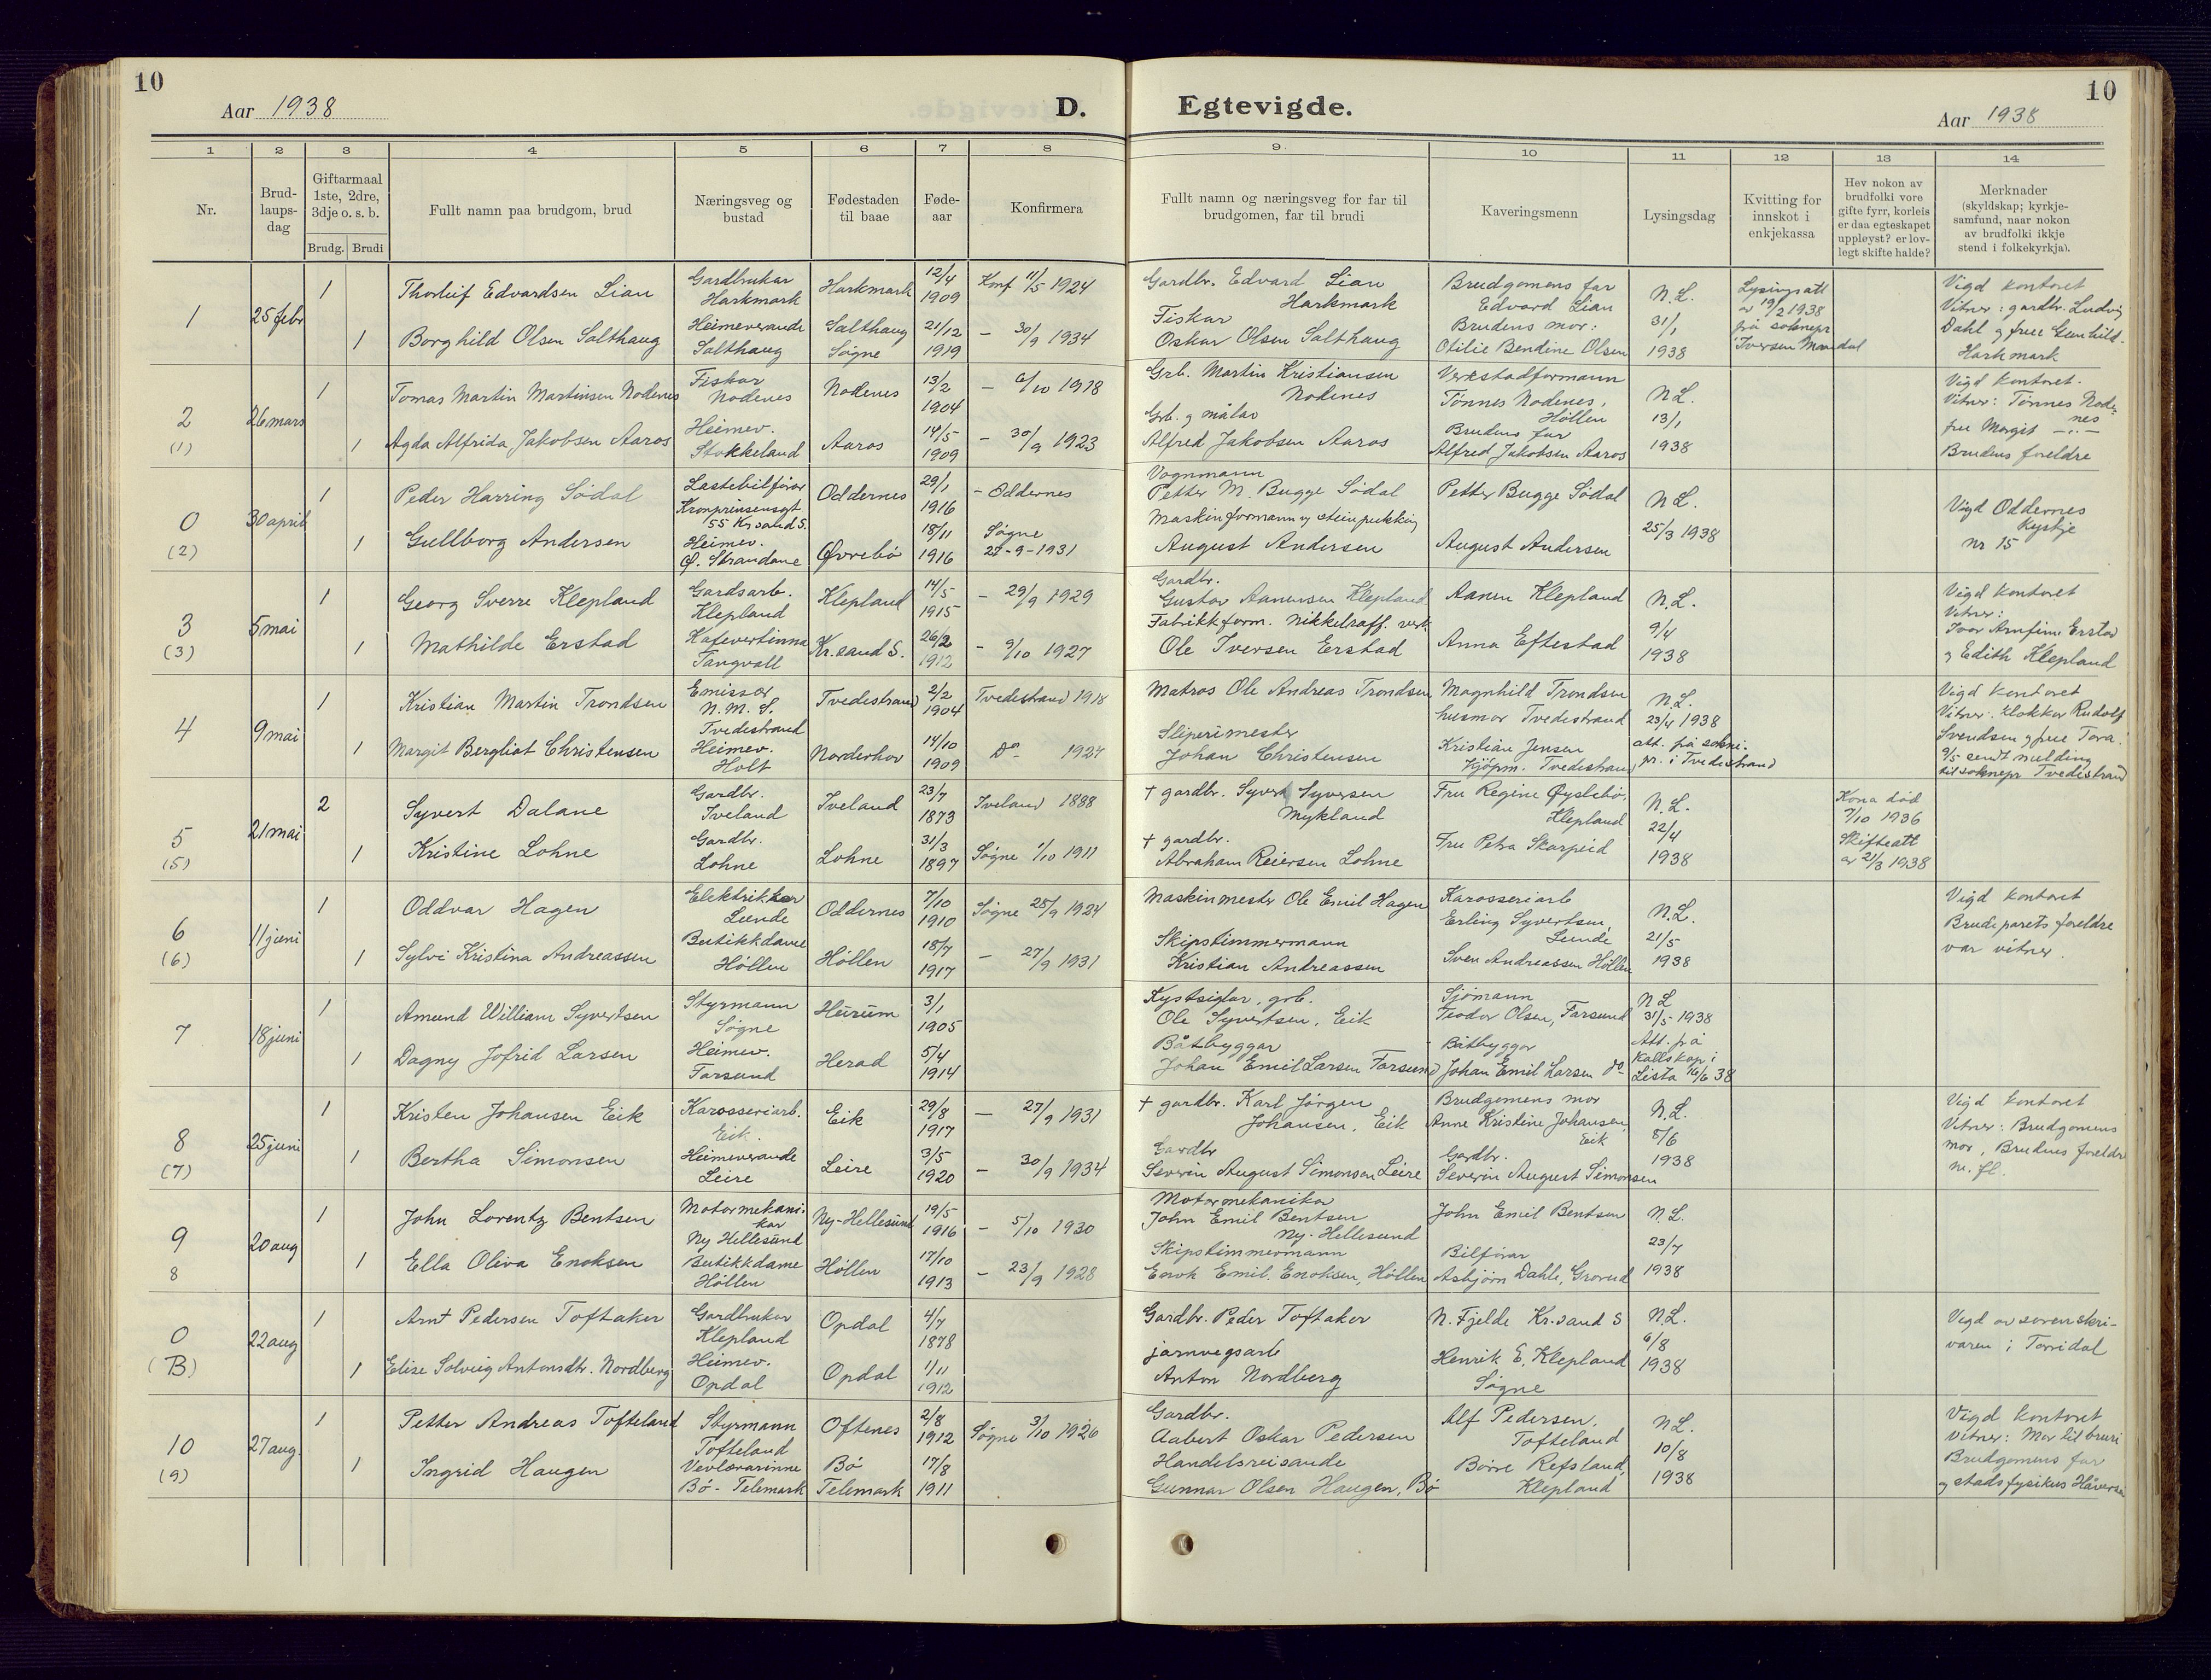 10
Aar 1938
D.
Egtevigde.
10
Aar 1938
1 2 3 4 5 6 7 8 9 10 11 12 13 14
Nr.
Brud-
laups-
dag
Giftarmaal
1ste, 2dre,
3dje o. s. b.
Brudg. Brudi
Fullt namn paa brudgom, brud
Næringsveg og
bustad
Fødestaden
til baae
Føde-
aar
Konfirmera
Fullt namn og næringsveg for far til
brudgomen, far til brudi
Kaveringsmenn
Lysingsdag
Kvitting for
innskot i
enkjekassa
Hev nokon av
brudfolki vore
gifte fyrr, korleis
er daa egteskapet
uppløyst? er lov-
legt skifte halde?
Merknader
(skyldskap; kyrkje-
samfund, naar nokon
av brudfolki ikkje
stend i folkekyrkja).
1
25 febr
1
Thorleif Edvardsen Lian
Gardbrukar
Harkmark
Harkmark
12/4
1909
Konf 11/5 1924
Gardbr. Edvard Lian
Harkmark
Brudgomens far
Edvard Lian
N.L.
31/1
1938
Lysingsatt
av 19/2 1938
frå soknepr
Iversen Mandal
Vigd kontoret
Vitner: gardbr. Ludvig
Dahl og frue Gunhild.
Harkmark
1
Borghild Olsen Salthaug
Heimeverande
Salthaug
Salthaug
Søgne
21/12
1919
— 30/9 1934
Fiskar
Oskar Olsen Salthaug
Brudens mor:
Otilie Bendine Olsen
2
(1)
26 mars
1
Tomas Martin Martinsen Nodenes
Fiskar
Nodenes
Nodenes
13/2
1904
— 6/10 1918
Grb. Martin Kristiansen
Nodenes
Verkstadformann
Tønnes Nodenes,
Høllen
N.L.
13/1
1938
Vigd kontoret.
Vitner: Tønnes Node-
nes
frue Margit — " —
Brudens foreldre
1
Agda Alfrida Jakobsen Aaros
Heimev.
Stokkeland
Aaros
14/5
1909
— 30/9 1923
Grb. og målar
Alfred Jakobsen Aaros
Brudens far
Alfred Jakobsen Aaros
0
(2)
30 april
1
Peder Harring Sødal
Lastebilførar
Kronprinsensgt
55 Kr.sand S.
Oddernes
29/1
1916
— Oddernes
Vognmann
Petter M. Bugge Sødal
Petter Bugge Sødal
N.L.
25/3 1938
Vigd Oddernes
Kyrkje
nr 15
1
Gullborg Andersen
Heimev.
Ø. Strandane
Øvrebø
18/11
1916
Søgne
27-9-1931
Maskinformann og steinpukking
August Andersen
August Andersen
3
(3)
5 mai
1
Georg Sverre Klepland
Gardsarb.
Klepland
Klepland
14/5
1915
— 29/9 1929
Gardbr.
Gustav Aanensen Klepland
Aanen Klepland
N.L.
9/4
1938
Vigd kontoret
Vitner:
Ivar Arnfinn Erstad
og Edith Klepland
1
Mathilde Erstad
Kafevertinna
Tangvall
Kr.sand S.
26/2
1912
— 9/10 1927
Fabrikkform. Nikkelraff. verk.
Ole Iversen Erstad
Anna Eftestad
4
9 mai
1
Kristian Martin Trondsen
Emissær
N.M.S.
Tvedestrand
Tvedestrand
2/2
1904
Tvedestrand 1918
Matros Ole Andreas Trondsen
Magnhild Trondsen
husmor Tvedestrand
N.L.
23/4 1938
att. frå sokne-
pr. i Tvedestrand
Vigd kontoret
Vitner: Klokkar Rudolf
Svendsen og frue Tora.
9/5 sendt melding
til soknepr Tvedestrand
1
Margit Bergliot Christensen
Heimev.
Holt
Norderhov
14/10
1909
Do 1924
Sliperimester
Johan Christensen
Kristian Jensen
Kjøpm. Tvedestrand
5
(5)
21 mai
2
Syvert Dalane
Gardbr.
Iveland
Iveland
23/7
1873
Iveland 1888
† gardbr. Syvert Syversen
Mykland
Fru Regine Øyslebø,
Klepland
N.L.
22/4
1938
Kona død
7/10 1936
Skifteatt
av 21/3 1938
1
Kristine Lohne
Gardbr.
Lohne
Lohne
31/3
1897
Søgne 1/10 1911
† gardbr.
Abraham Reiersen Lohne
Fru Petra Skarpeid
6
(6)
11 juni
1
Oddvar Hagen
Elektrikkar
Lunde
Oddernes
7/10
1910
Søgne 28/9 1924
Maskinmester Ole Emil Hagen
Karosseriarb
Erling Syvertsen,
Lunde
N.L.
21/5
1938
Vigd kontoret
Brudeparets foreldre
var vitner.
1
Sylvi Kristina Andreassen
Butikkdame
Høllen
Høllen
18/7
1917
— 27/9 1931
Skipstimmermann
Kristian Andreassen
Sven Andreassen Høllen
7
18 juni
1
Amund William Syvertsen
Styrmann
Søgne
Hurum
3/1
1905
Kystsiglar, grb.
Ole Syvertsen, Eik
Sjømann
Teodor Olsen, Farsund
N L
31/5 1938
Att. frå
kallskap i
Lista 16/6 38
1
Dagny Jofrid Larsen
Heimev.
Farsund
Herad
5/4
1914
Båtbyggar
Johan Emil Larsen Farsund
Båtbyggar
Johan Emil Larsen do
8
(7)
25 juni
1
Kristen Johansen Eik
Karosseriarb.
Eik.
Eik
29/8
1917
— 27/9 1931
† gardbr. Karl Jörgen
Johansen, Eik
Brudgomens mor
Anne Kristine Johansen,
Eik
N.L.
8/6
1938
Vigd kontoret
Vitner: Brudgomens
mor, Brudens foreldre
m. fl.
1
Bertha Simonsen
Heimeverande
Leire
Leire
3/5
1920
— 30/9 1934
Gardbr
Severin August Simonsen Leire
Gardbr.
Severin August Simonsen
9
8
20 aug
1
John Lorentz Bentsen
Motormekani-
kar
Ny Hellesund
Ny-Hellesund
19/5
1916
— 5/10 1930
Motormekanikar
John Emil Bentsen
Ny-Hellesund
John Emil Bentsen
N.L.
23/7
1938
1
Ella Oliva Enoksen
Butikkdame
Høllen
Høllen
17/10
1913
— 23/9 1928
Skipstimmermann
Enok Emil. Enoksen, Høllen
Bilførar
Asbjörn Dahle, Grovud
0
(B)
22 aug
1
Arnt Pedersen Toftaker
Gardbrukar
Klepland
Opdal
4/7
1878
Gardbr. Peder Toftaker
N. Fjelde Kr.sand S
N.L.
6/8
1938
Vigd av sorenskri-
varen i Torridal
1
Elise Solveig Antonsdtr. Nordberg
Heimev.
Opdal
Opdal
1/11
1912
jarnvegsarb
Anton Nordberg
Henrik E. Klepland
Søgne
10
(9)
27 aug.
1
Petter Andreas Tofteland
Styrmann
Tofteland
Oftenes
2/8
1912
Søgne 3/10 1926
Gardbr.
Aabert Oskar Pedersen
Alf Pedersen,
Tofteland
N.L.
10/8
1938
Vigd kontoret
Vitner: Mor til bruri
Brudgomens far
og stadsfysikus
1
Ingrid Haugen
Vevlærarinne
Bø - Telemark
Bø
Telemark
17/8
1911
Handelsreisande
Gunnar Olsen Haugen, Bø
Børre Refsland,
Klepland